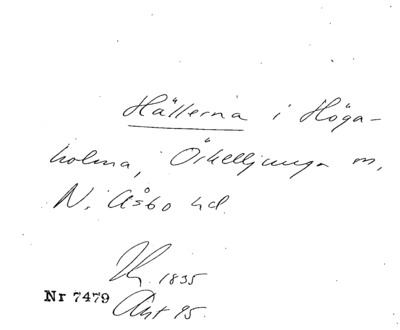 Hällerna i Höga-
holma, Örkelljunga m,
N. Åsbo hd.
1835
Nr 7479
Akt 95.